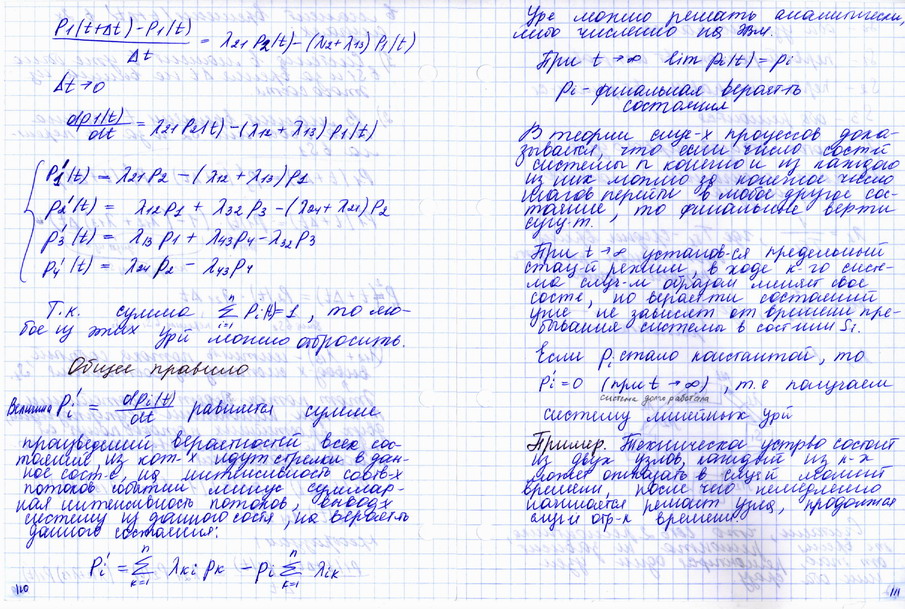 P₁(t+Δt)-P₁(t) / Δt = λ₂₁P₂(t)-(λ₁₂+λ₁₃)P₁(t)
Δt→0
dp₁(t)/dt = λ₂₁P₂(t)-(λ₁₂+λ₁₃)p₁(t)
P₁'(t) = λ₂₁P₂ -(λ₁₂+λ₁₃)P₁
P₂'(t) = λ₁₂P₁ + λ₃₂P₃ -(λ₂₄+λ₂₁)P₂
P₃'(t) = λ₁₃P₁ + λ₄₃P₄-λ₃₂P₃
P₄'(t) = λ₂₄P₂ - λ₄₃P₄
Т.к. сумма Σ(i=1..n) Pᵢ(t)=1, то лю-
бое из этих ур-й можно отбросить.
Общее правило
Величина Pᵢ' = dpᵢ(t)/dt равняется сумме
произведений вероятностей всех сос-
тояний, из кот-х идут стрелки в дан-
ное сост-е, на интенсивность соотв-х
потоков событий минус суммар-
ная интенсивность потоков,
систему из данного сост-я, на вероят-ть
данного состояния:
Pᵢ' = Σ(k=1..n) λₖᵢ pₖ - pᵢ Σ(k=1..n) λᵢₖ
110
Ур-е можно решать аналитически,
либо численно на ЭВМ.
При t→∞ lim pᵢ(t) = pᵢ
Pᵢ-финальная вероят-ть
состояния
В теории случ-х процессов дока-
зывается, что если число сост-й
системы n конечно и из каждого
из них можно за конечное число
шагов перейти в любое другое сос-
тояние, то финальные вер-ти
сущ-т.
При t→∞ установ-ся предельный
стац-й режим, в ходе к-го систе-
ма случ-м образом меняет свое
сост-е, но вероят-ти состояний
уже не зависят от времени пре-
бывания системы в сост-нии Sᵢ.
Если pᵢ стало константой, то
Pᵢ'=0 (при t→∞), т.е получаем
система доработала
систему линейных ур-й
Пример. Техническое устр-во состоит
из двух узлов, каждый из к-х
может отказать в случ-й момент
времени, после чего немедленно
начинается ремонт узла, продолжа
случ-й отр-к времени.
111